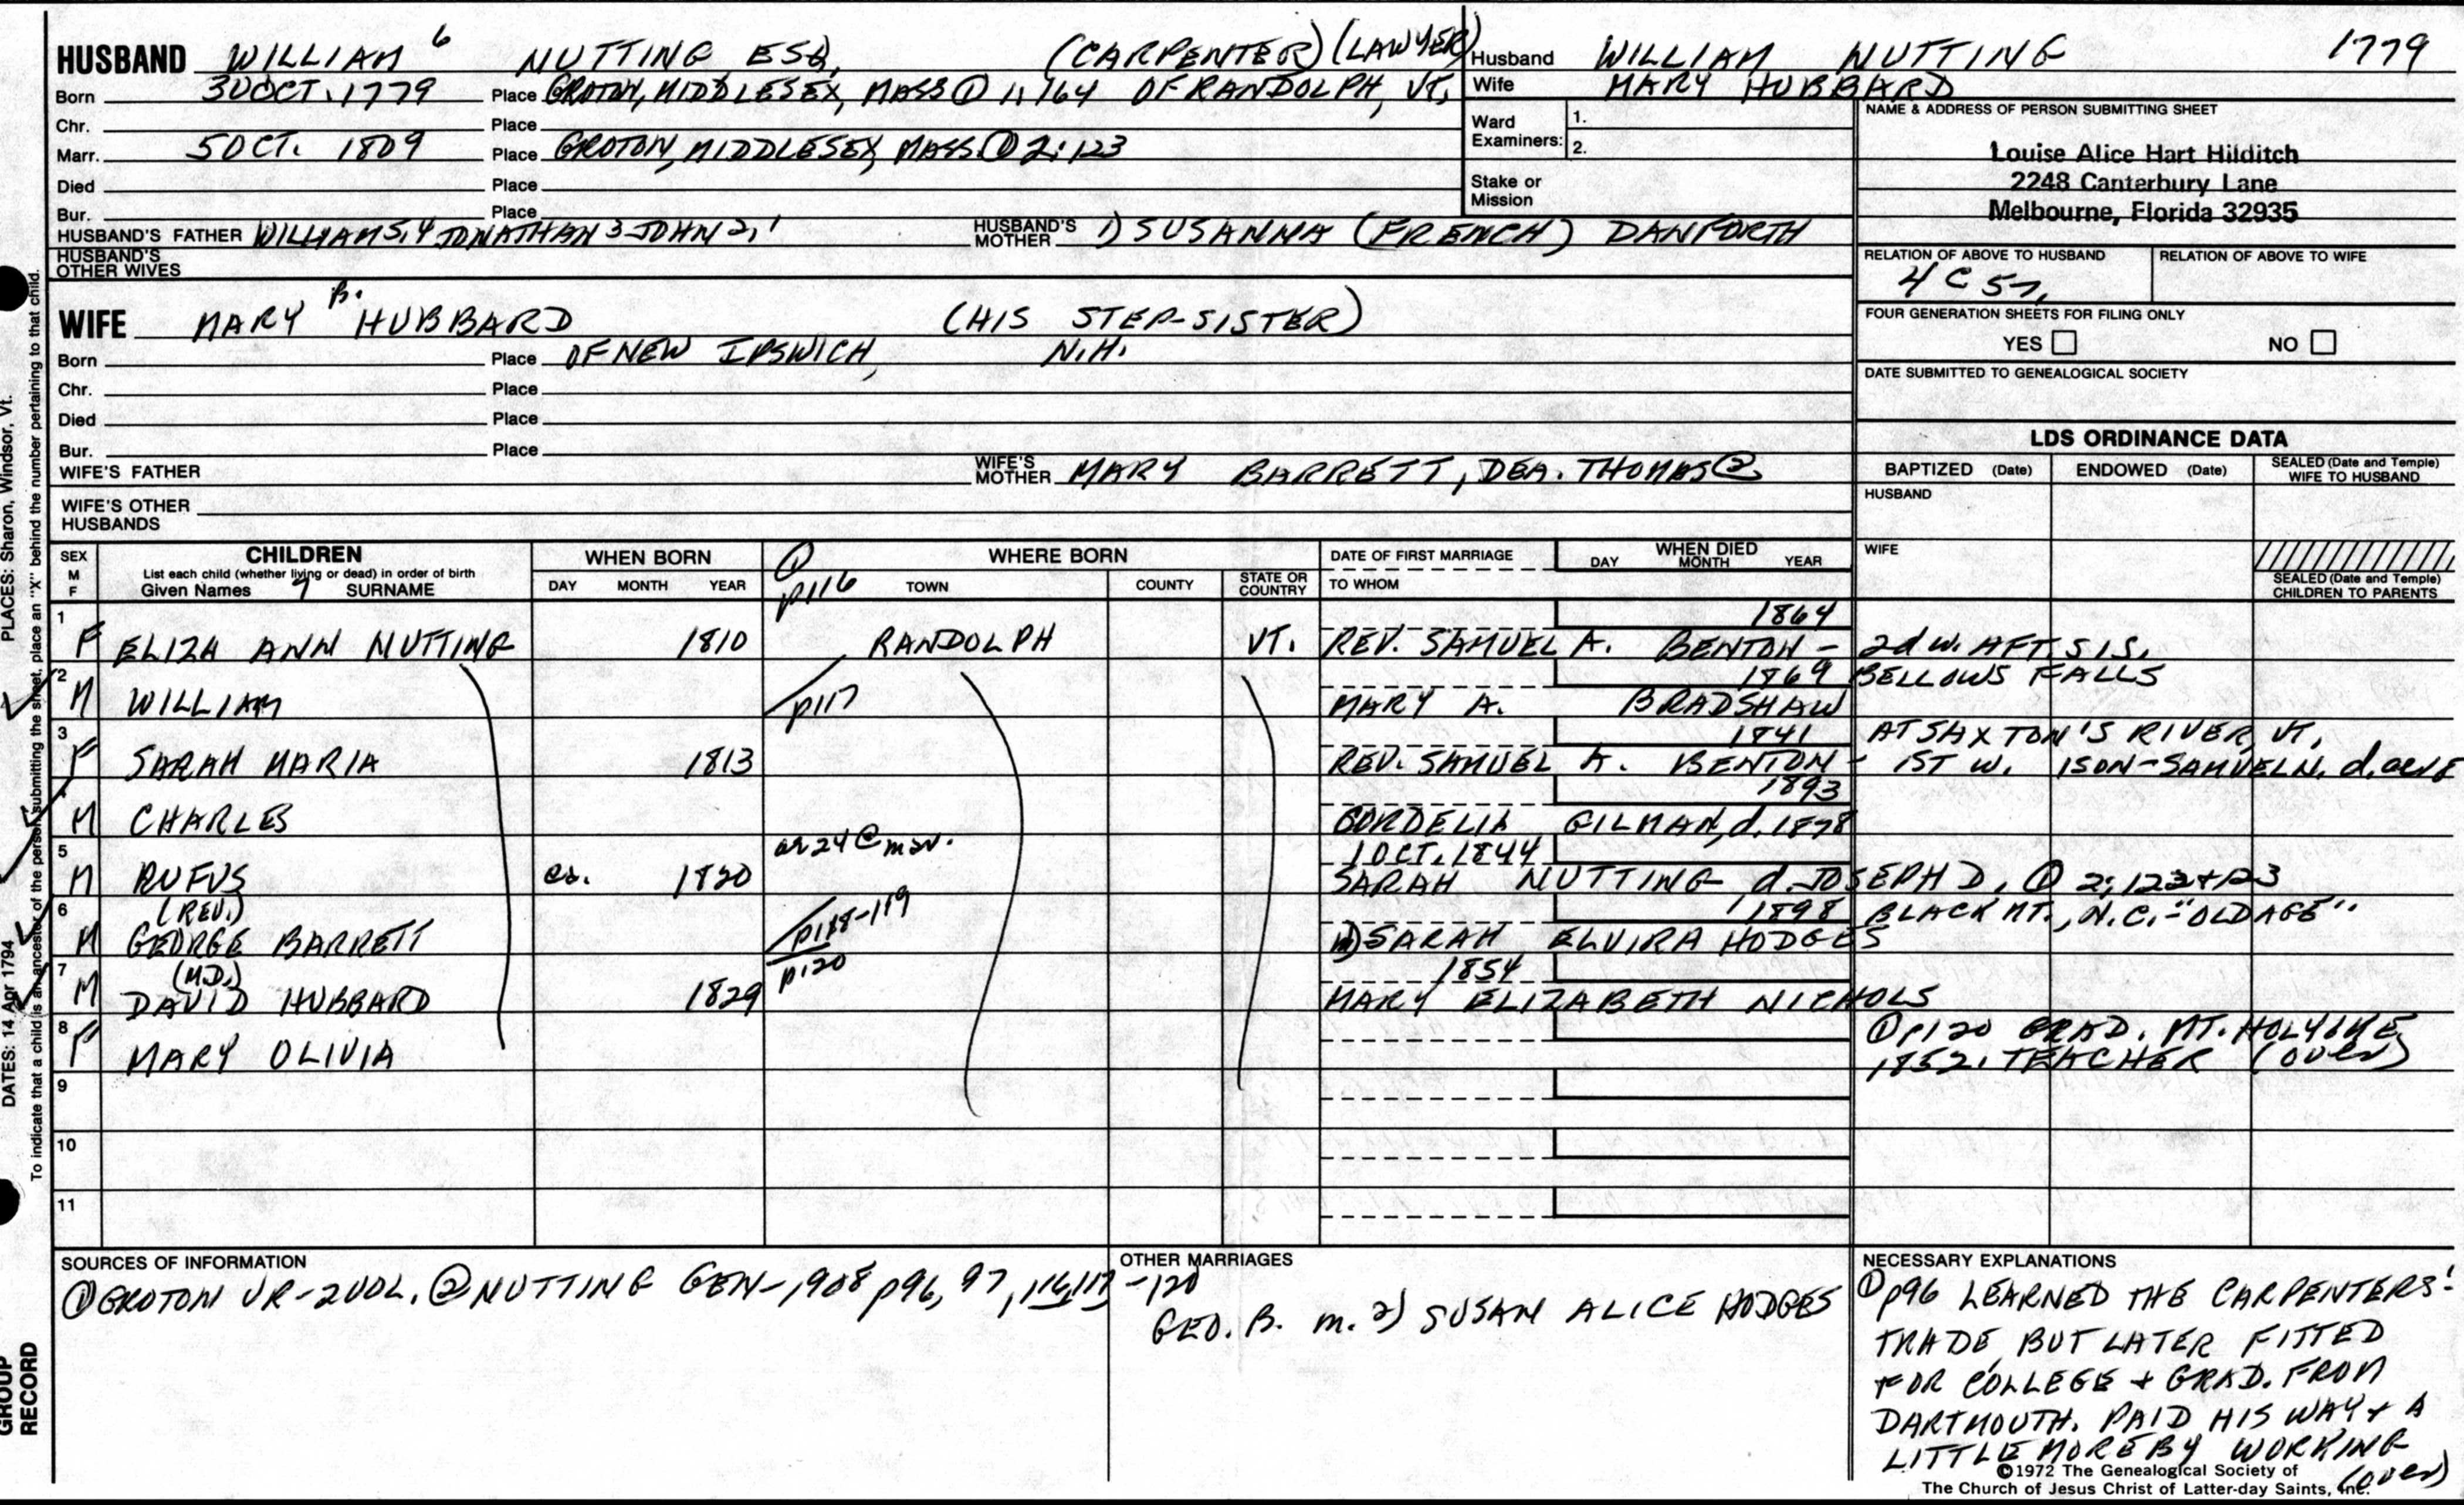 HUSBAND WILLIAM 6 NUTTING ESQ. (CARPENTER) (LAWYER)
Born 30 OCT. 1779 Place GROTON, MIDDLESEX, MASS ① 1, 164 OF RANDOLPH, VT.
Chr. Place
Marr. 5 OCT. 1809 Place GROTON, MIDDLESEX, MASS. ① 2:123
Died Place
Bur. Place
HUSBAND'S FATHER WILLIAM 5,4 JONATHAN 3 JOHN 2,1 HUSBAND'S MOTHER 1) SUSANNA (FRENCH) DANFORTH
HUSBAND'S OTHER WIVES
Husband WILLIAM NUTTING 1779
Wife MARY HUBBARD
Ward Examiners: 1.
2.
Stake or Mission
NAME & ADDRESS OF PERSON SUBMITTING SHEET
Louise Alice Hart Hilditch
2248 Canterbury Lane
Melbourne, Florida 32935
RELATION OF ABOVE TO HUSBAND RELATION OF ABOVE TO WIFE
4 C 5
FOUR GENERATION SHEETS FOR FILING ONLY
YES NO
DATE SUBMITTED TO GENEALOGICAL SOCIETY
WIFE MARY B. HUBBARD (HIS STEP-SISTER)
Born Place OF NEW IPSWICH, N.H.
Chr. Place
Died Place
Bur. Place
WIFE'S FATHER WIFE'S MOTHER MARY BARRETT, DEA. THOMAS ②
WIFE'S OTHER HUSBANDS
LDS ORDINANCE DATA
BAPTIZED (Date) ENDOWED (Date) SEALED (Date and Temple) WIFE TO HUSBAND
HUSBAND
WIFE
SEALED (Date and Temple) CHILDREN TO PARENTS
SEX M F CHILDREN WHEN BORN ① WHERE BORN DATE OF FIRST MARRIAGE WHEN DIED
List each child (whether living or dead) in order of birth DAY MONTH YEAR p116 TOWN COUNTY STATE OR COUNTRY TO WHOM DAY MONTH YEAR
Given Names 7 SURNAME
1 1864
F ELIZA ANN NUTTING 1810 RANDOLPH VT. REV. SAMUEL A. BENTON - 2d W. AFT. SIS.
2 1869 BELLOWS FALLS
M WILLIAM p117 MARY A. BRADSHAW
3 1841 AT SAXTON'S RIVER, VT.
F SARAH MARIA 1813 REV. SAMUEL A. BENTON - 1ST W. 1 SON - SAMUEL N.
1893
M CHARLES CORDELIA GILMAN, d. 1878
5 ae 24 @ mar. 1 OCT. 1844
M RUFUS ca. 1820 SARAH NUTTING d. JOSEPH D. ① 2; 122+123
6 (REV.) p118-119 1898 BLACK MT., N.C. "OLD AGE".
M GEORGE BARRETT 1) SARAH ELVIRA HODGES
7 (M.D.) p120 1854
M DAVID HUBBARD 1829 MARY ELIZABETH NICHOLS
8 ① p120 GRAD. MT. HOLYOKE
F MARY OLIVIA 1852. TEACHER (over)
9
10
11
SOURCES OF INFORMATION
① GROTON VR - 2 VOL. ② NUTTING GEN - 1908 p96, 97, 116, 117 - 120
OTHER MARRIAGES
GEO. B. m. 2) SUSAN ALICE HODGES
NECESSARY EXPLANATIONS
① p96 LEARNED THE CARPENTERS'
TRADE, BUT LATER FITTED
FOR COLLEGE + GRAD. FROM
DARTMOUTH. PAID HIS WAY + A
LITTLE MORE BY WORKING
(over)
©1972 The Genealogical Society of
The Church of Jesus Christ of Latter-day Saints, Inc.
PLACES: Sharon, Windsor, Vt.
DATES: 14 Apr 1794
To indicate that a child is an ancestor of the person submitting the sheet, place an "X" behind the number pertaining to that child.
GROUP
RECORD